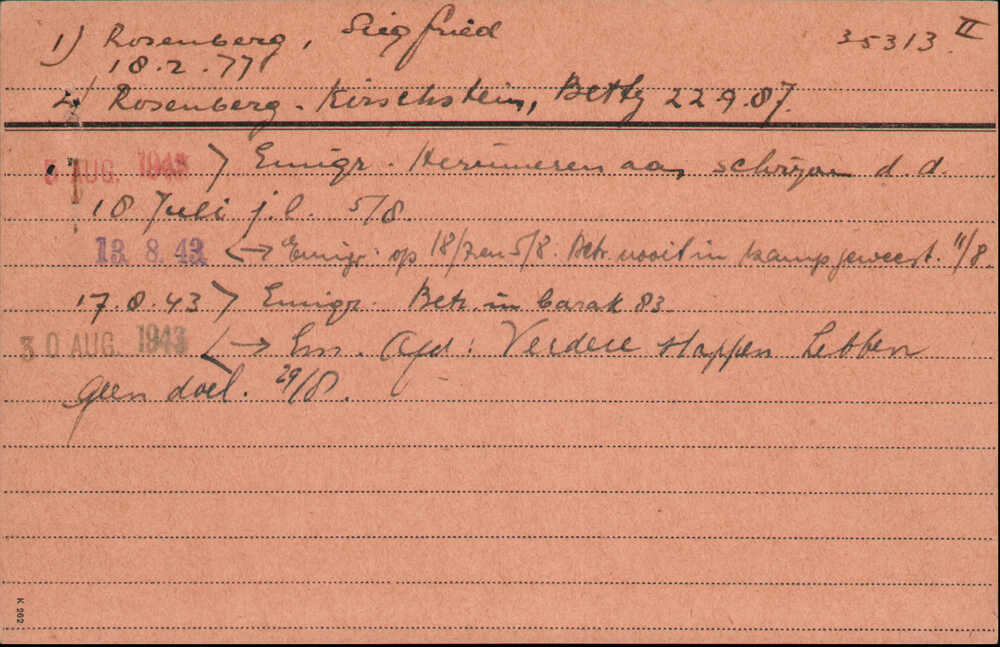 1) Rosenberg, Siegfried 35313 II
18.2.77
2) Rosenberg-Kirschstein, Betty 22.9.87.
5 AUG. 1943 > Emigr. Herinneren aan schrijven d.d.
18 Juli j.l. 5/8.
13. 8. 43 <-> Emigr. op 18/7 en 5/8. Betr. nooit in kamp geweest. 11/8.
17.8.43 > Emigr. Betr. in barak 83
30 AUG. 1943 <-> Em. Afd: Verdere stappen hebben
geen doel. 29/8.
K 262